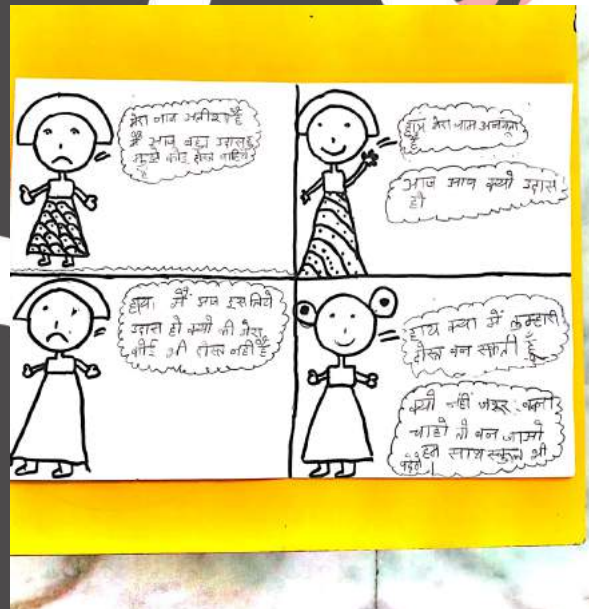 मेरा नाम मनीषा है
मैं आज बहुत उदास हूँ
मुझे कोई दोस्त चाहिये
है
हाय मेरा नाम
है
आज आप क्यो उदास
हो
हाय मैं आज इस लिये
उदास हो क्यो की मेरा
कोई भी दोस्त नहीं है
हाय क्या मैं तुम्हारी
दोस्त बन सकती हूँ
क्यो नहीं जरूर
चाहो तो बन जाओ
हम साथ स्कूल भी